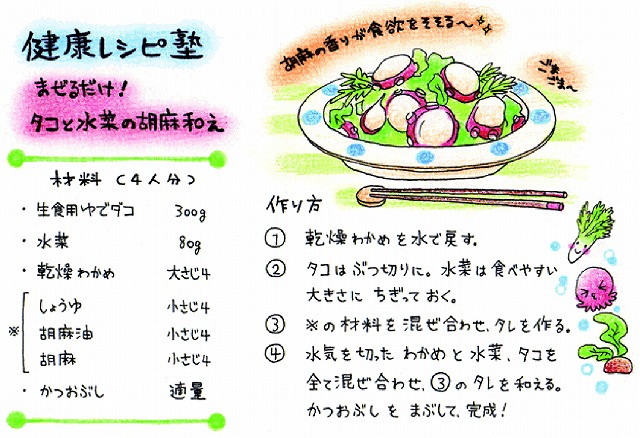 健康レシピ塾
まぜるだけ!
タコと水菜の胡麻和え
材料(4人分)
・生食用ゆでダコ 300g
・水菜 80g
・乾燥わかめ 大さじ4
※
しょうゆ 小さじ4
胡麻油 小さじ4
胡麻 小さじ4
・かつおぶし 適量
胡麻の香りが食欲をそそる〜
ごま
ごま〜
作り方
① 乾燥わかめを水で戻す。
② タコはぶつ切りに。水菜は食べやすい
大きさにちぎっておく。
③ ※の材料を混ぜ合わせ、タレを作る。
④ 水気を切ったわかめと水菜、タコを
全て混ぜ合わせ、③のタレを和える。
かつおぶしをまぶして、完成!